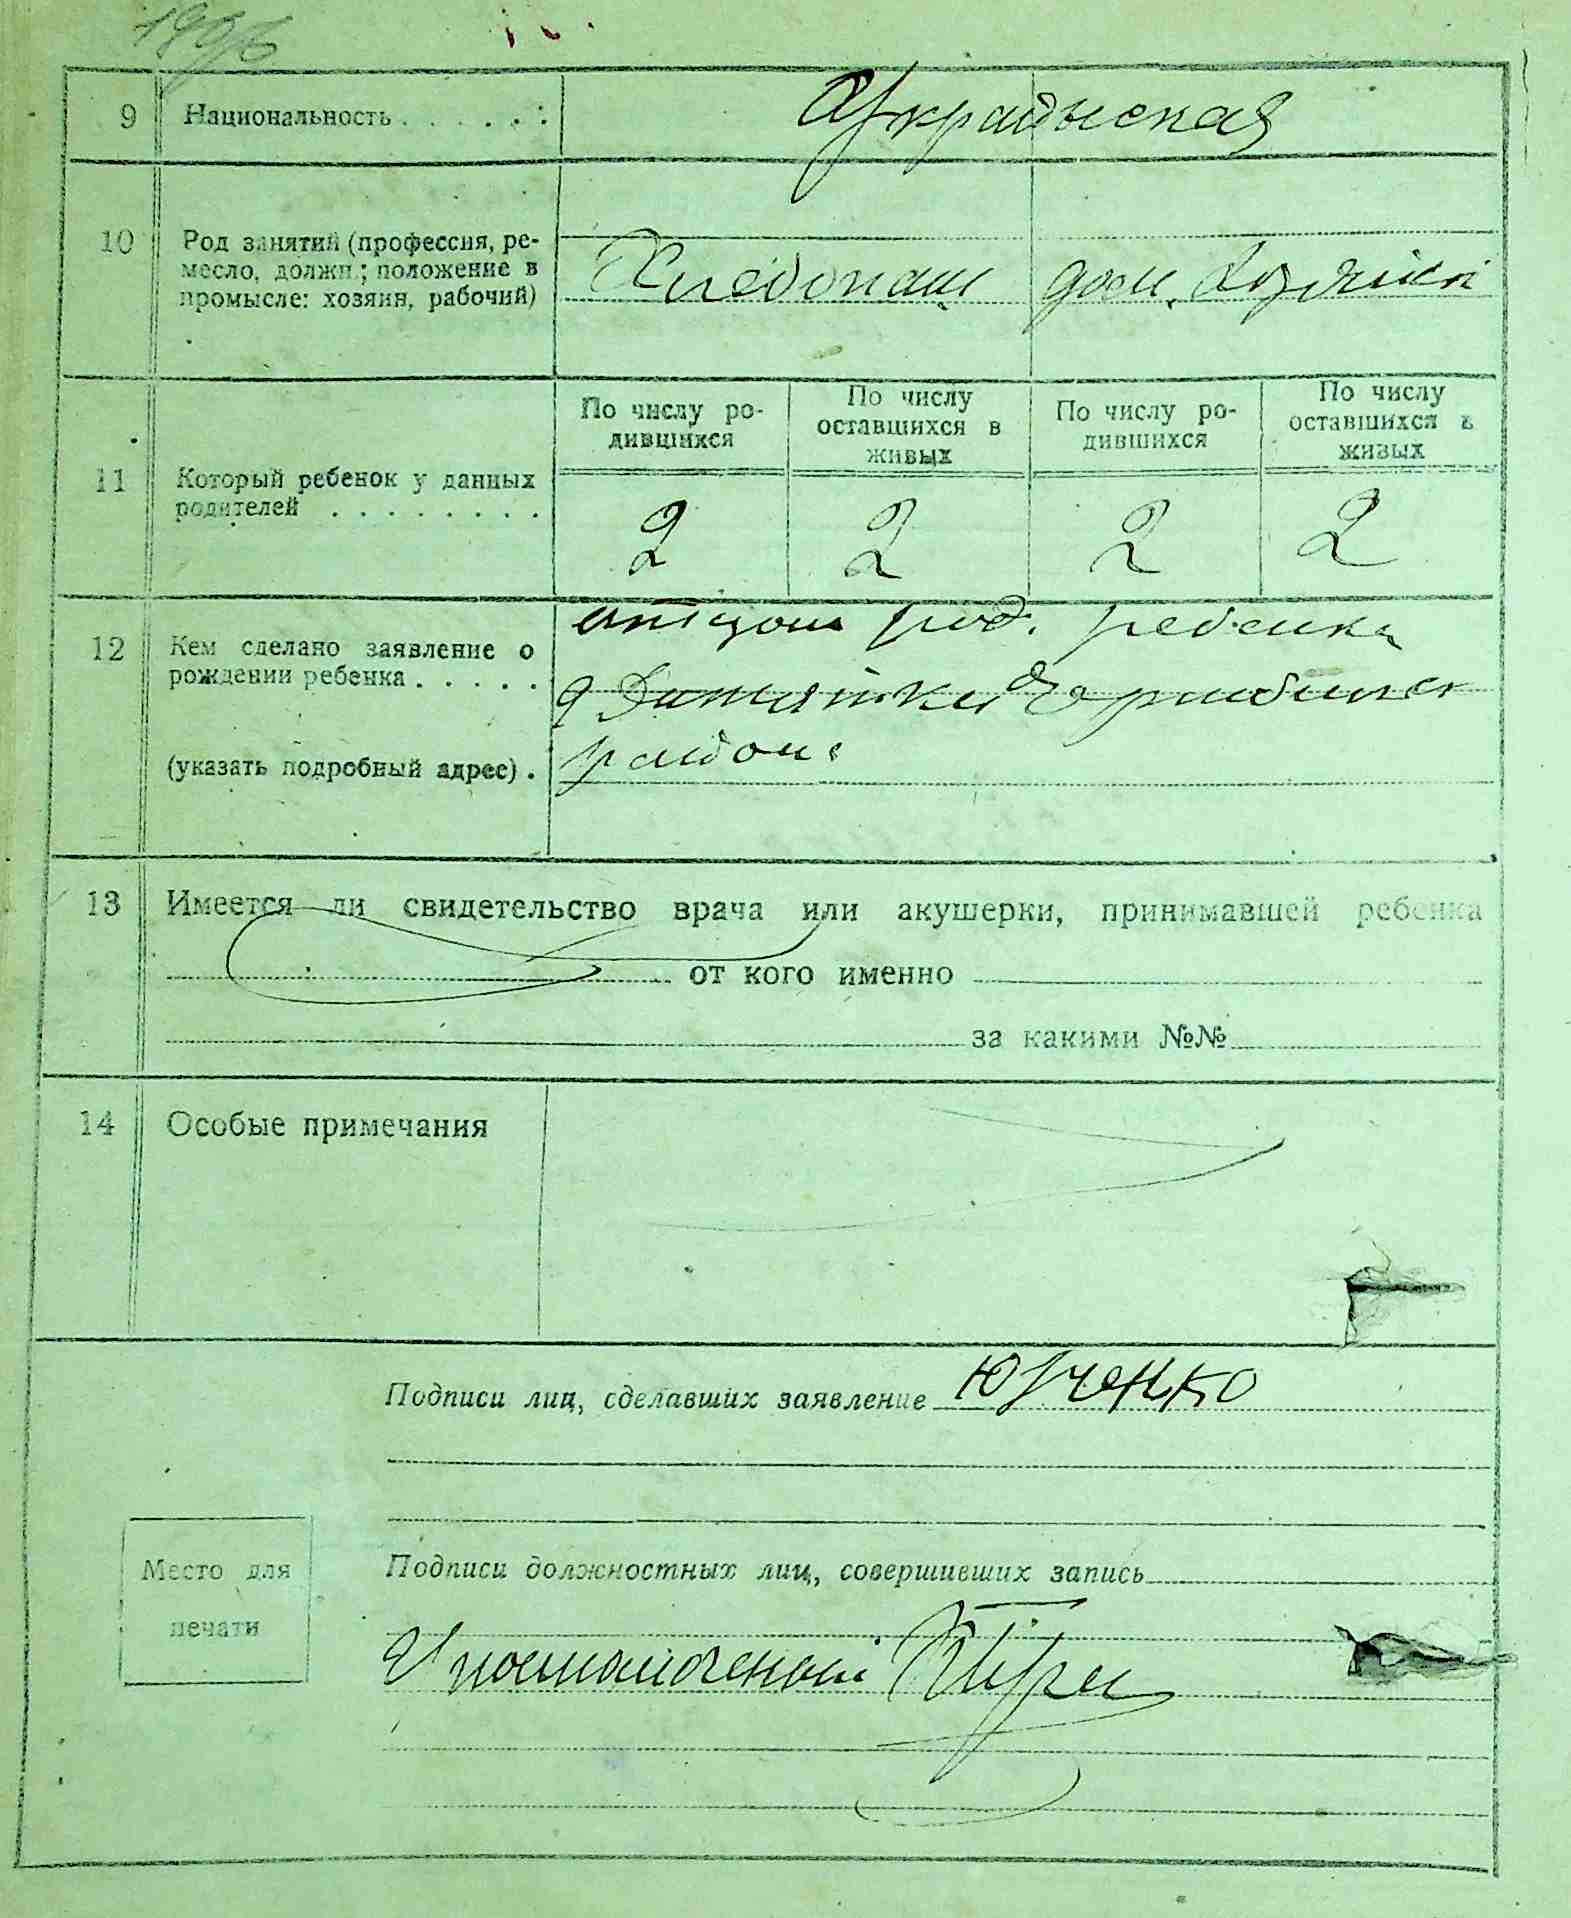 9 Национальность . . . . . . :
Украинская
10 Род занятий (профессия, ре-
месло, должн.; положение в
промысле: хозяин, рабочий)
Хлебопаш дом. хозяйка
11 Который ребенок у данных
родителей . . . . . . . .
По числу ро-
дившихся
По числу
оставшихся в
живых
По числу ро-
дившихся
По числу
оставшихся в
живых
2 2 2 2
12 Кем сделано заявление о
рождении ребенка . . . . .
(указать подробный адрес) .
отцом род. ребенка
района
13 Имеется ли свидетельство врача или акушерки, принимавшей ребенка
от кого именно
за какими №№
14 Особые примечания
Подписи лиц, сделавших заявление Юрченко
Место для
печати
Подписи должностных лиц, совершивших запись